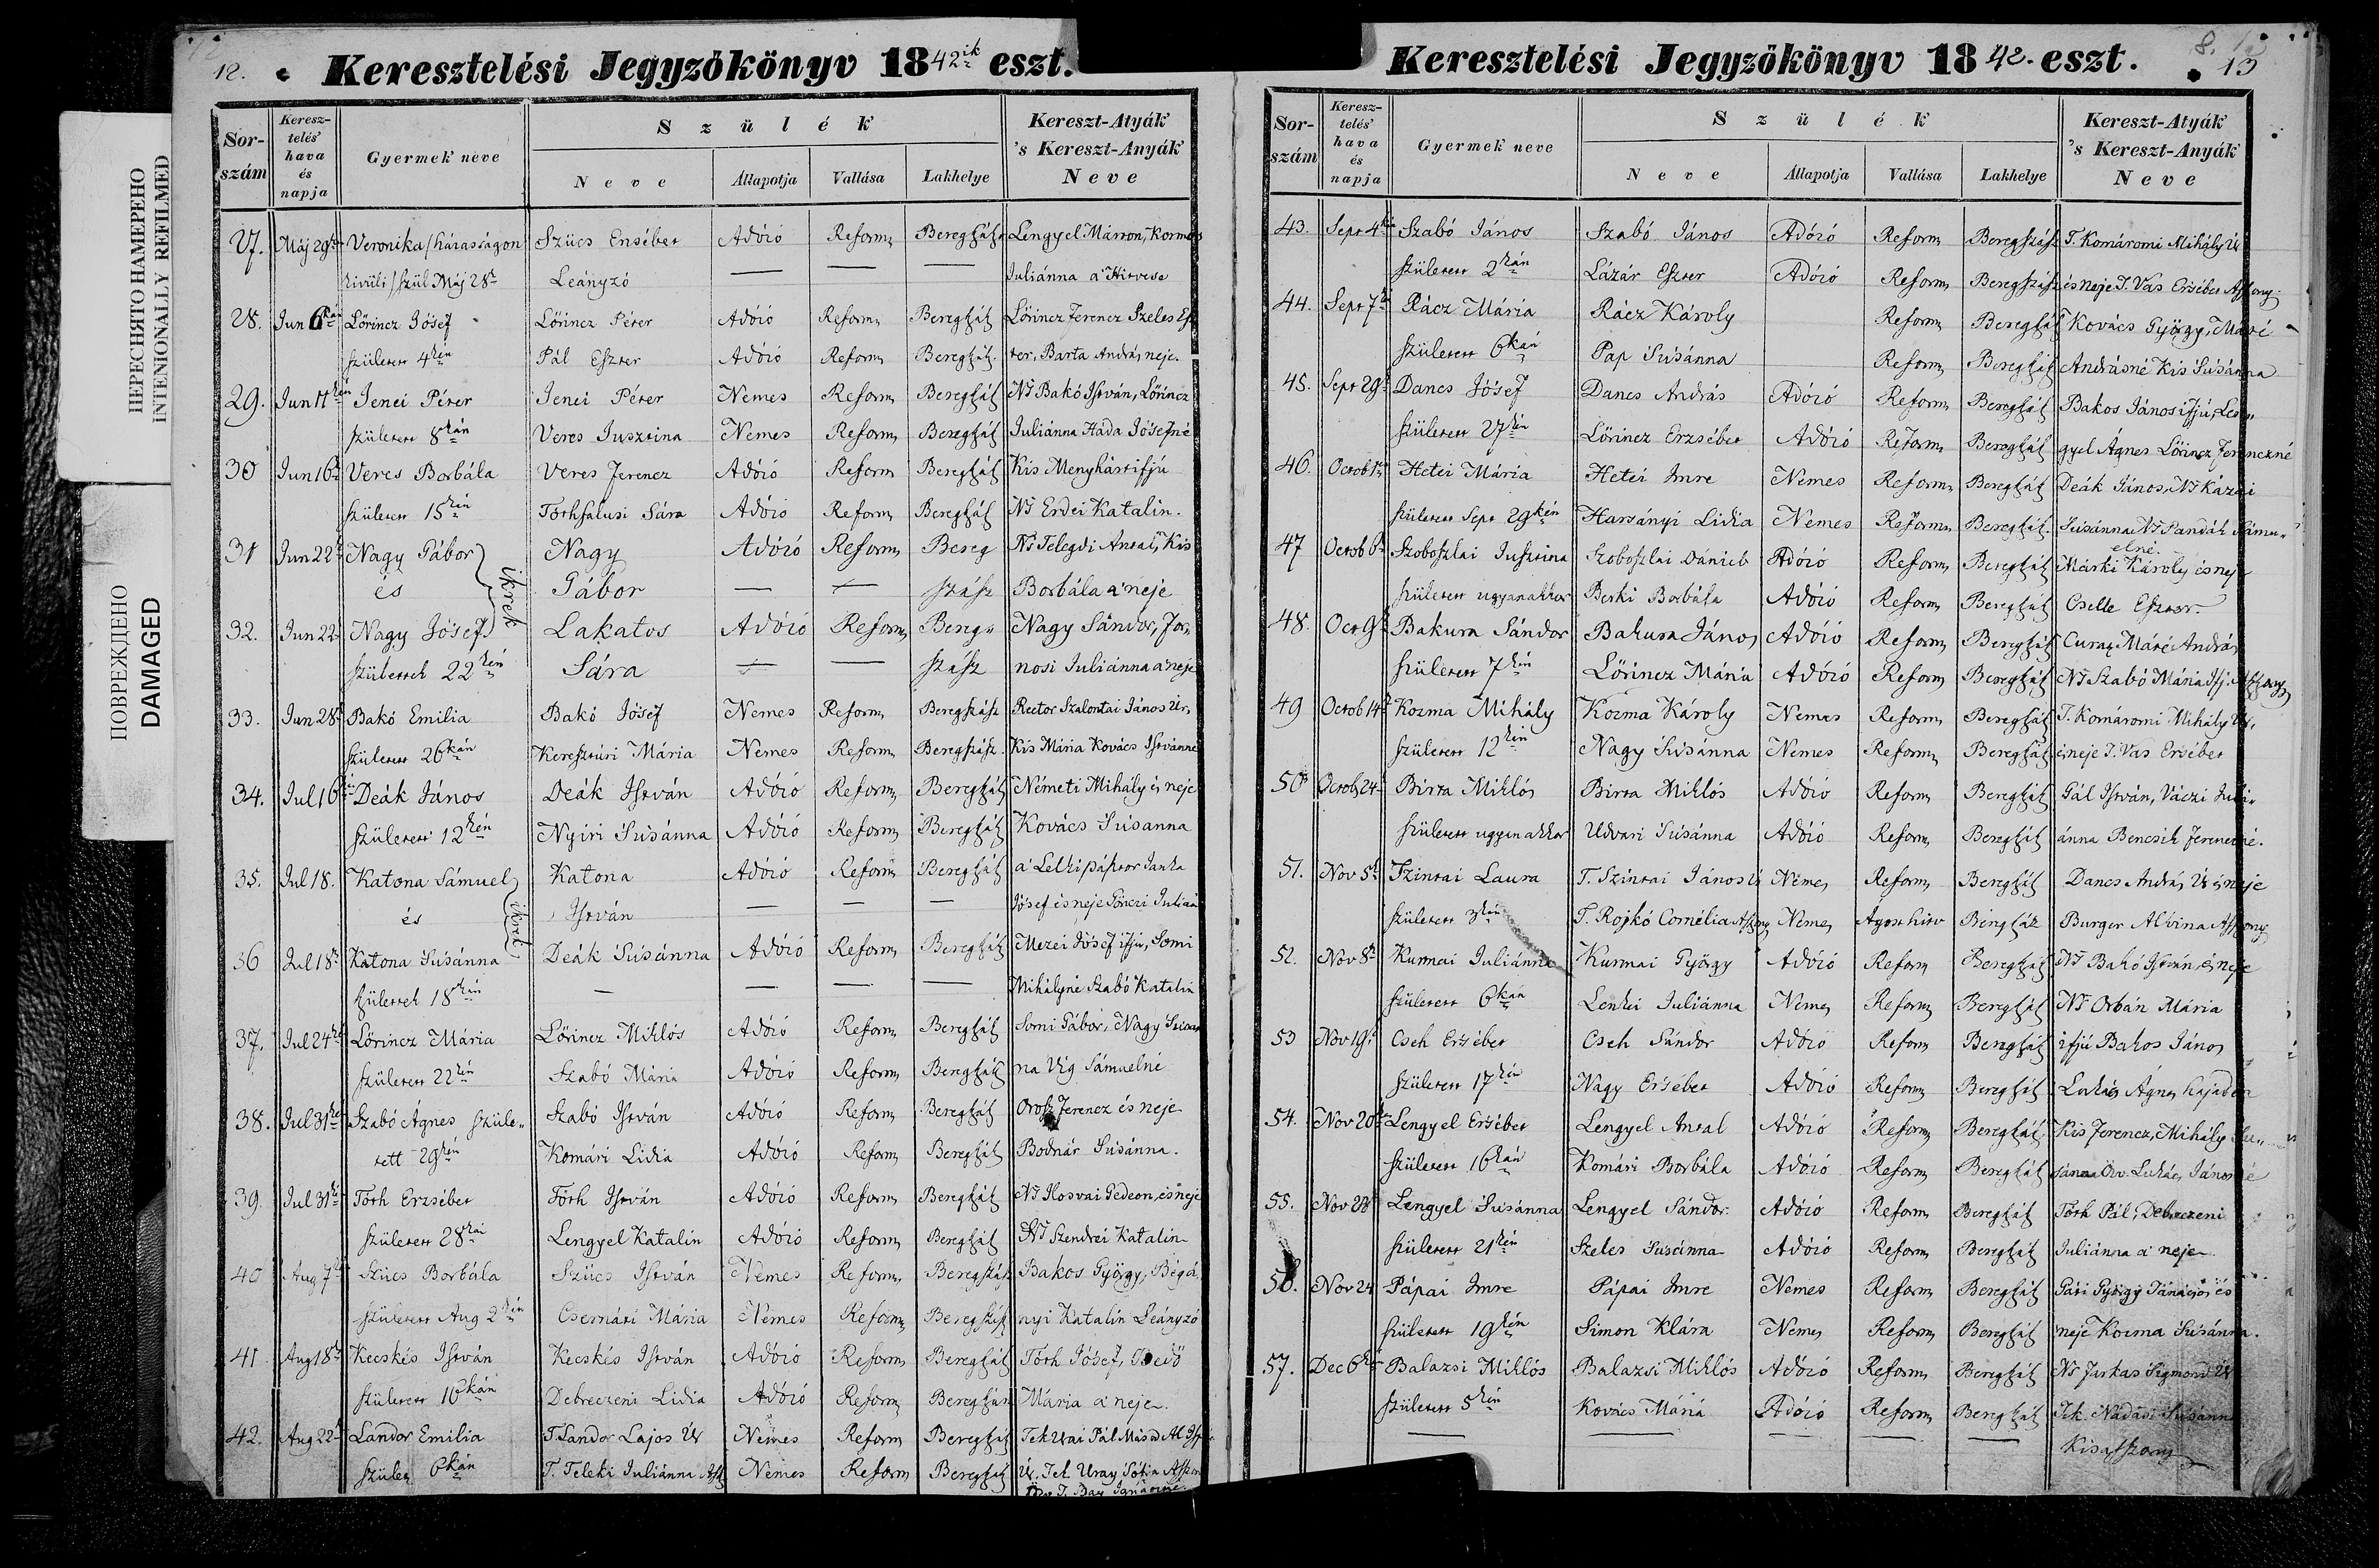 ПЕРЕСНЯТО НАМЕРЕНО
INTENIONALLY REFILMED
ПОВРЕЖДЕНО
DAMAGED
12.
Keresztelési Jegyzökönyv 1842ik eszt.
Sor-szám Keresz-telés' hava és napja Gyermek' neve Szülék Kereszt-Atyák 's Kereszt-Anyák Neve
Neve Állapotja Vallása Lakhelye
27. Máj 29 Veronika /házasságon Szücs Ersébet Adózó Reform Beregszász Lengyel Márton, Kormos
kivüli/ szül Máj 28 Leányzó — — — Juliánna a' Hitvese
28. Jun 6kán Lörincz Jósef Lörincz Péter Adózó Reform Beregszász Lörincz Ferencz Szeles Esz
született 4kén Pál Eszter Adózó Reform Beregszász ter, Barta András neje.
29. Jun 11kén Jenei Péter Jenei Péter Nemes Reform Beregszász Ns Bakó István, Lörincz
született 8kán Veres Jusztina Nemes Reform Beregszász Juliánna Hada Jósefné
30 Jun 16 Veres Borbála Veres Ferencz Adózó Reform Beregszász Kis Menyhárt ifjú
született 15kén Tóthfalusi Sára Adózó Reform Beregszász Ns Erdei Katalin.
31 Jun 22 Nagy Gábor Nagy Adózó Reform Bereg Ns Telegdi Antal, Kis
és ikrek Gábor — — szász Borbála a' neje
32. Jun 22 Nagy Jósef Lakatos Adózó Reform Bereg„ Nagy Sándor, For„
születtek 22kén Sára — — szász nosi Juliánna a' neje
33. Jun 28 Bakó Emilia Bakó Jósef Nemes Reform Beregszász Rector Szalontai János Úr,
született 26kán Keresztúri Mária Nemes Reform Beregszász Kis Mária Kovács Istvánné
34. Jul 16 Deák János Deák István Adózó Reform Beregszász Németi Mihály és neje
született 12kén Nyiri Susánna Adózó Reform Beregszász Kovács Susanna
35. Jul 18. Katona Sámuel Katona Adózó Reform Beregszász a' Lelkipásztor Janka
és ikrek István — — — Jósef és neje Gönczi Julián
36 Jul 18 Katona Susánna Deák Susánna Adózó Reform Beregszász Mezei Jósef ifju, Somi
születtek 18kán — — — — Mihályné Szabó Katalin
37. Jul 24 Lörincz Mária Lörincz Miklós Adózó Reform Beregszász Somi Gábor, Nagy Susán
született 22kén Szabó Mária Adózó Reform Beregszász na Vig Sámuelné
38. Jul 31 Szabó Ágnes szüle„ Szabó István Adózó Reform Beregszász Orosz Ferencz és neje
tett 29kén Komári Lidia Adózó Reform Beregszász Bodnár Susánna.
39. Jul 31 Tóth Erzsébet Tóth István Adózó Reform Beregszász Ns Ilosvai Gedeon, és neje
született 28kai Lengyel Katalin Adózó Reform Beregszász Ns Szendrei Katalin
40 Aug 7 Szücs Borbála Szücs István Nemes Reform Beregszász Bakos György, Bégá
született Aug 2kén Csernáti Mária Nemes Reform Beregszász nyi Katalin Leányzó
41 Aug 18 Kecskés István Kecskés István Adózó Reform Beregszász Tóth Jósef,
született 16kán Debreczeni Lidia Adózó Reform Beregszász Mária a' neje.
42. Aug 22 Landor Emilia T. Landor Lajos Úr Nemes Reform Beregszász Tek Pál Másod Al
szület 6kán T. Teleki Juliánna Nemes Reform Beregszász Úr. Tek Uray Sófia
Özv T. Bay Ignáczné.
13
Keresztelési Jegyzökönyv 1842. eszt.
Sor-szám Keresz-telés' hava és napja Gyermek neve Szülék Kereszt-Atyák 's Kereszt-Anyák Neve
Neve Állapotja Vallása Lakhelye
43. Sept 4 Szabó János Szabó János Adózó Reform Beregszász T. Komáromi Mihály Úr
született 2kán Lázár Eszter Adózó Reform Beregszász és neje T. Vas Ersébet Aszony.
44. Sept 7 Rácz Mária Rácz Károly Reform Beregszász Kovács György, Máté
született 6kán Pap Susánna Reform Beregszász Andrásné Kis Susánna
45. Sept 29 Dancs Jósef Dancs András Adózó Reform Beregszász Bakos János ifjú, Len„
született 27kén Lörincz Erzsébet Adózó Reform Beregszász gyel Ágnes Lörincz Ferenczné
46. Octob 1 Hetei Mária Hetei Imre Nemes Reform Beregszász Deák János, Ns Kázmi
született Sept 29kén Harsányi Lidia Nemes Reform Beregszász Susánna Ns Pandák Sámu„
elné.
47 Octob 6 Szoboszlai Jusztina Szoboszlai Dániel Adózó Reform Beregszász Márki Károly és neje
született ugyanakkor Berki Borbála Adózó Reform Beregszász Cselle Eszter.
48. Oct 9 Bakura Sándor Bakura János Adózó Reform Beregszász Máté András
született 7kén Lörincz Mária Adózó Reform Beregszász Ns Szabó Mária Ifj.
49 Octob 14 Kozma Mihály Kozma Károly Nemes Reform Beregszász T. Komáromi Mihály Úr,
született 12kén Nagy Susánna Nemes Reform Beregszász és neje T. Vas Ersébet
50 Octob 24 Birta Miklós Birta Miklós Adózó Reform Beregszász Gál István, Váczi Juli„
született ugyanakkor Udvari Susánna Adózó Reform Beregszász ánna Bencsik Ferenczné.
51. Nov 5 Szintai Laura T. Szintai János Úr Nemes Reform Beregszász Dancs András Úr és neje
született 3kán T. Rojkó Cornélia Nemes Beregszász Burger Alvina Aszony
52. Nov 8 Kurmai Juliánna Kurmai György Adózó Reform Beregszász Ns Bakó István és neje
született 6kán Lenkei Juliánna Nemes Reform Beregszász Ns Orbán Mária
53 Nov 19 Cseh Ersébet Cseh Sándor Adózó Reform Beregszász ifjú Bakos János
született 17kén Nagy Ersébet Adózó Reform Beregszász Lukács Ágnes Hajadon
54. Nov 20 Lengyel Ersébet Lengyel Antal Adózó Reform Beregszász Kis Ferencz, Mihály Su„
született 16kán Komári Borbála Adózó Reform Beregszász sánna Özv. Lukács Jánosné
55. Nov 28 Lengyel Susánna Lengyel Sándor Adózó Reform Beregszász Tóth Pál, Debreczeni
született 21kén Szeles Susánna Adózó Reform Beregszász Juliánna a' neje
56. Nov 24 Pápai Imre Pápai Imre Nemes Reform Beregszász György Tánácsos és
született 19kén Simon Klára Nemes Reform Beregszász neje Kozma Susánna.
57. Dec 6 Balazsi Miklós Balazsi Miklós Adózó Reform Beregszász Ns Farkas Sigmond Úr
született 5kén Kovács Mária Adózó Reform Beregszász Tek. Nádasi Susánna
— — — — — Kisaszony